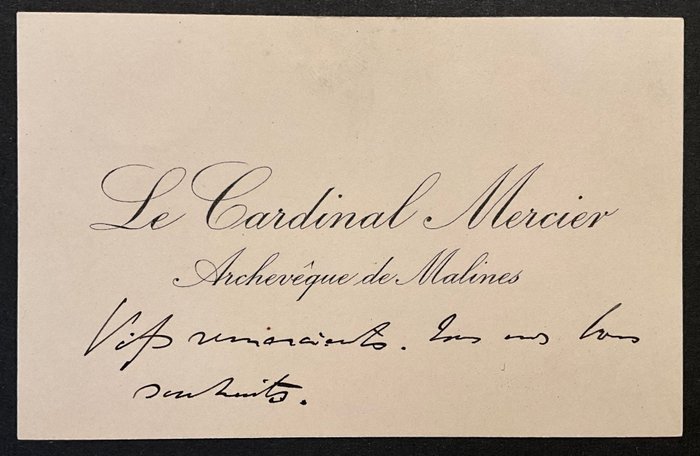 Le Cardinal Mercier
Archevêque de Malines
Vifs remerciements. Tous nos bons
souhaits.